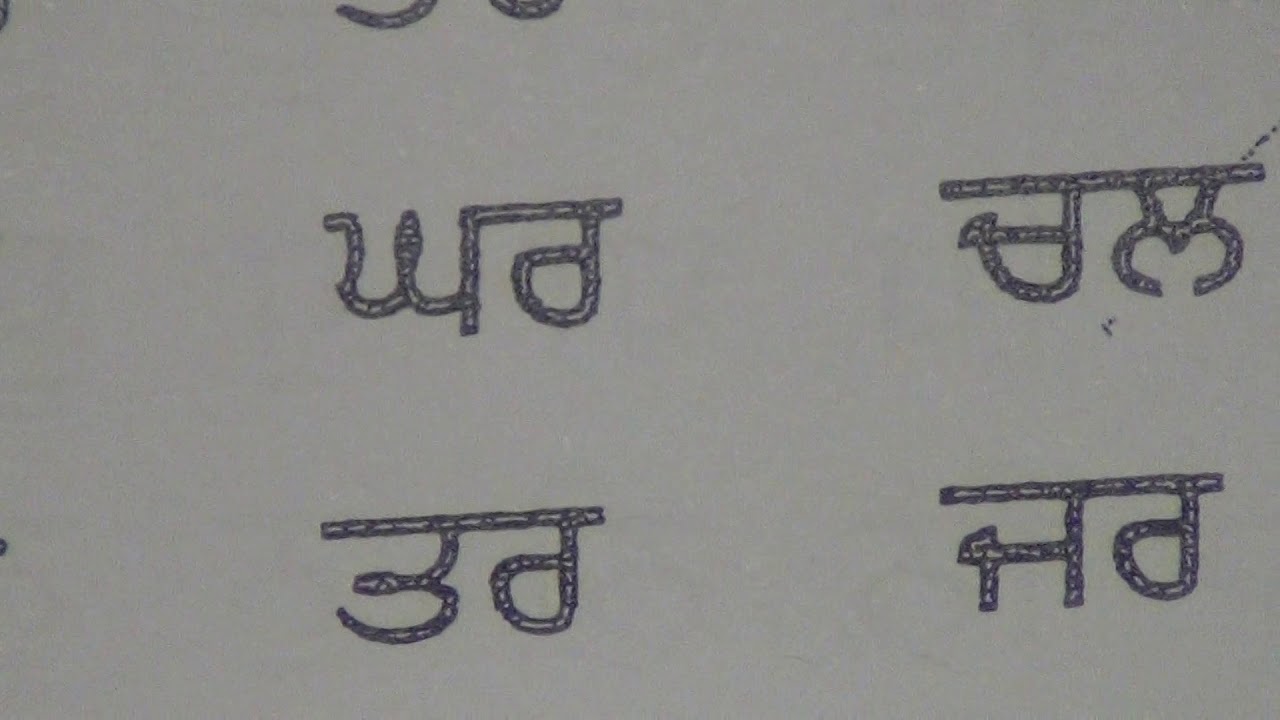 ਘਰ ਚਲ
ਤਰ ਜਰ